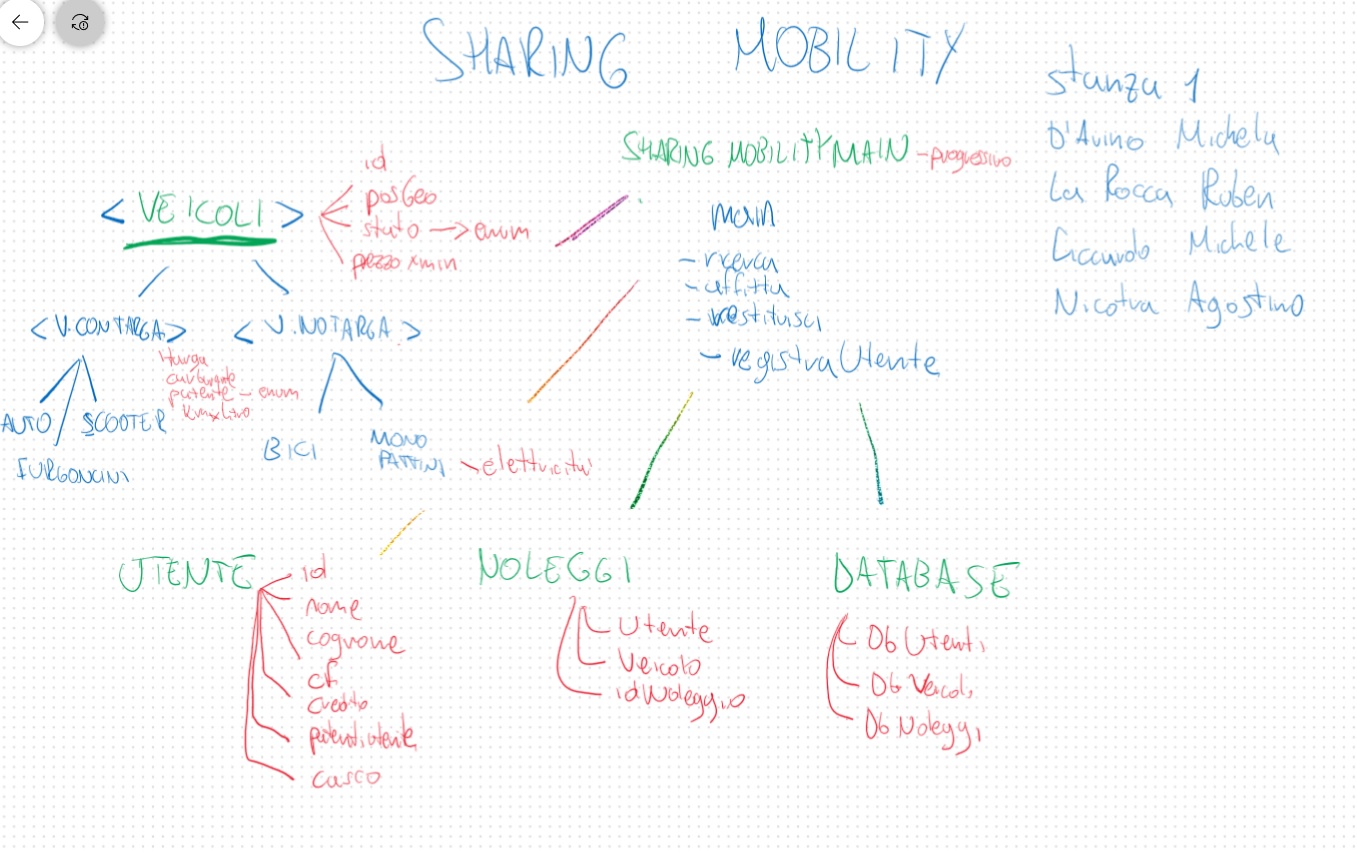 SHARING MOBILITY
stanza 1
D'Avino Michela
La Rocca Ruben
Liccardo Michele
Nicotra Agostino
SHARING MOBILITY MAIN - progressivo
main
- ricerca
- affitta
- restituisci
- registraUtente
< VEICOLI >
id
posGeo
stato -> enum
prezzo x min
< V.CONTARGA >
< V.NOTARGA >
targa
carburante
patente - enum
kmxlitro
AUTO
SCOOTER
FURGONCINI
BICI
MONO
PATTINI
- elettricita'
UTENTE
id
nome
cognome
cf
credito
casco
NOLEGGI
Utente
Veicolo
idNoleggio
DATABASE
Db Utenti
Db Veicoli
Db Noleggi